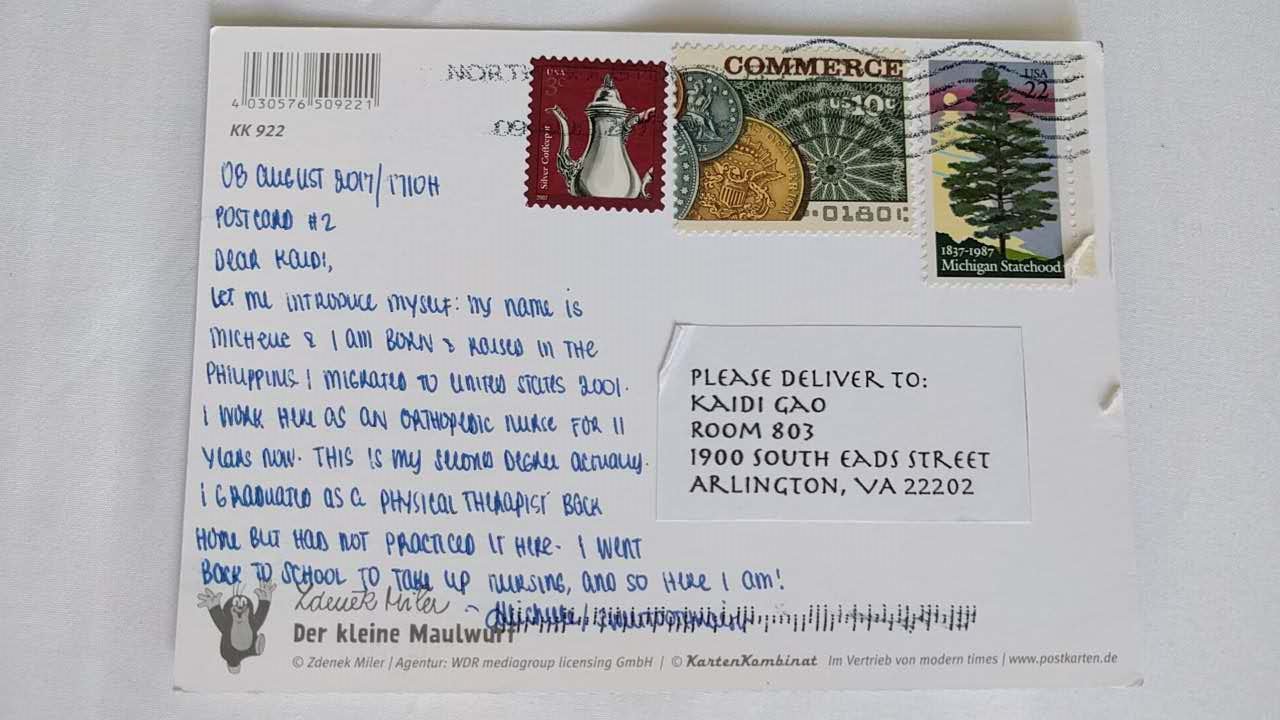 4 030576 509221
KK 922
NORTH
09
USA
3
Silver Coffeepot
2007
COMMERCE
US 10c
01801
USA
22
1837-1987
Michigan Statehood
08 AUGUST 2017/1710H
POSTCARD #2
DEAR KAIDI,
LET ME INTRODUCE MYSELF: MY NAME IS
MICHELLE & I AM BORN & RAISED IN THE
PHILIPPINES I MIGRATED TO UNITED STATES 2001.
I WORK HERE AS AN ORTHOPEDIC NURSE FOR 11
YEARS NOW. THIS IS MY SECOND DEGREE ACTUALLY.
I GRADUATED AS A PHYSICAL THERAPIST BACK
HOME BUT HAD NOT PRACTICED IT HERE. I WENT
BACK TO SCHOOL TO TAKE UP NURSING, AND SO HERE I AM!
~ Michelle/
PLEASE DELIVER TO:
KAIDI GAO
ROOM 803
1900 SOUTH EADS STREET
ARLINGTON, VA 22202
Zdenek Miler
Der kleine Maulwurf
© Zdenek Miler | Agentur: WDR mediagroup licensing GmbH | © KartenKombinat Im Vertrieb von modern times | www.postkarten.de